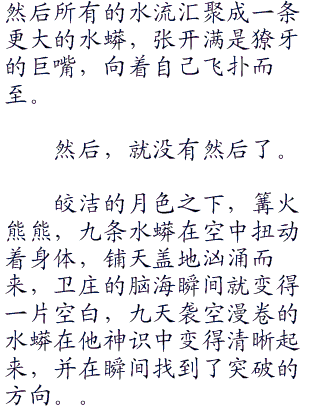 然后所有的水流汇聚成一条
更大的水蟒，张开满是獠牙
的巨嘴，向着自己飞扑而
至。
然后，就没有然后了。
皎洁的月色之下，篝火
熊熊，九条水蟒在空中扭动
着身体，铺天盖地汹涌而
来，卫庄的脑海瞬间就变得
一片空白，九天袭空漫卷的
水蟒在他神识中变得清晰起
来，并在瞬间找到了突破的
方向。。